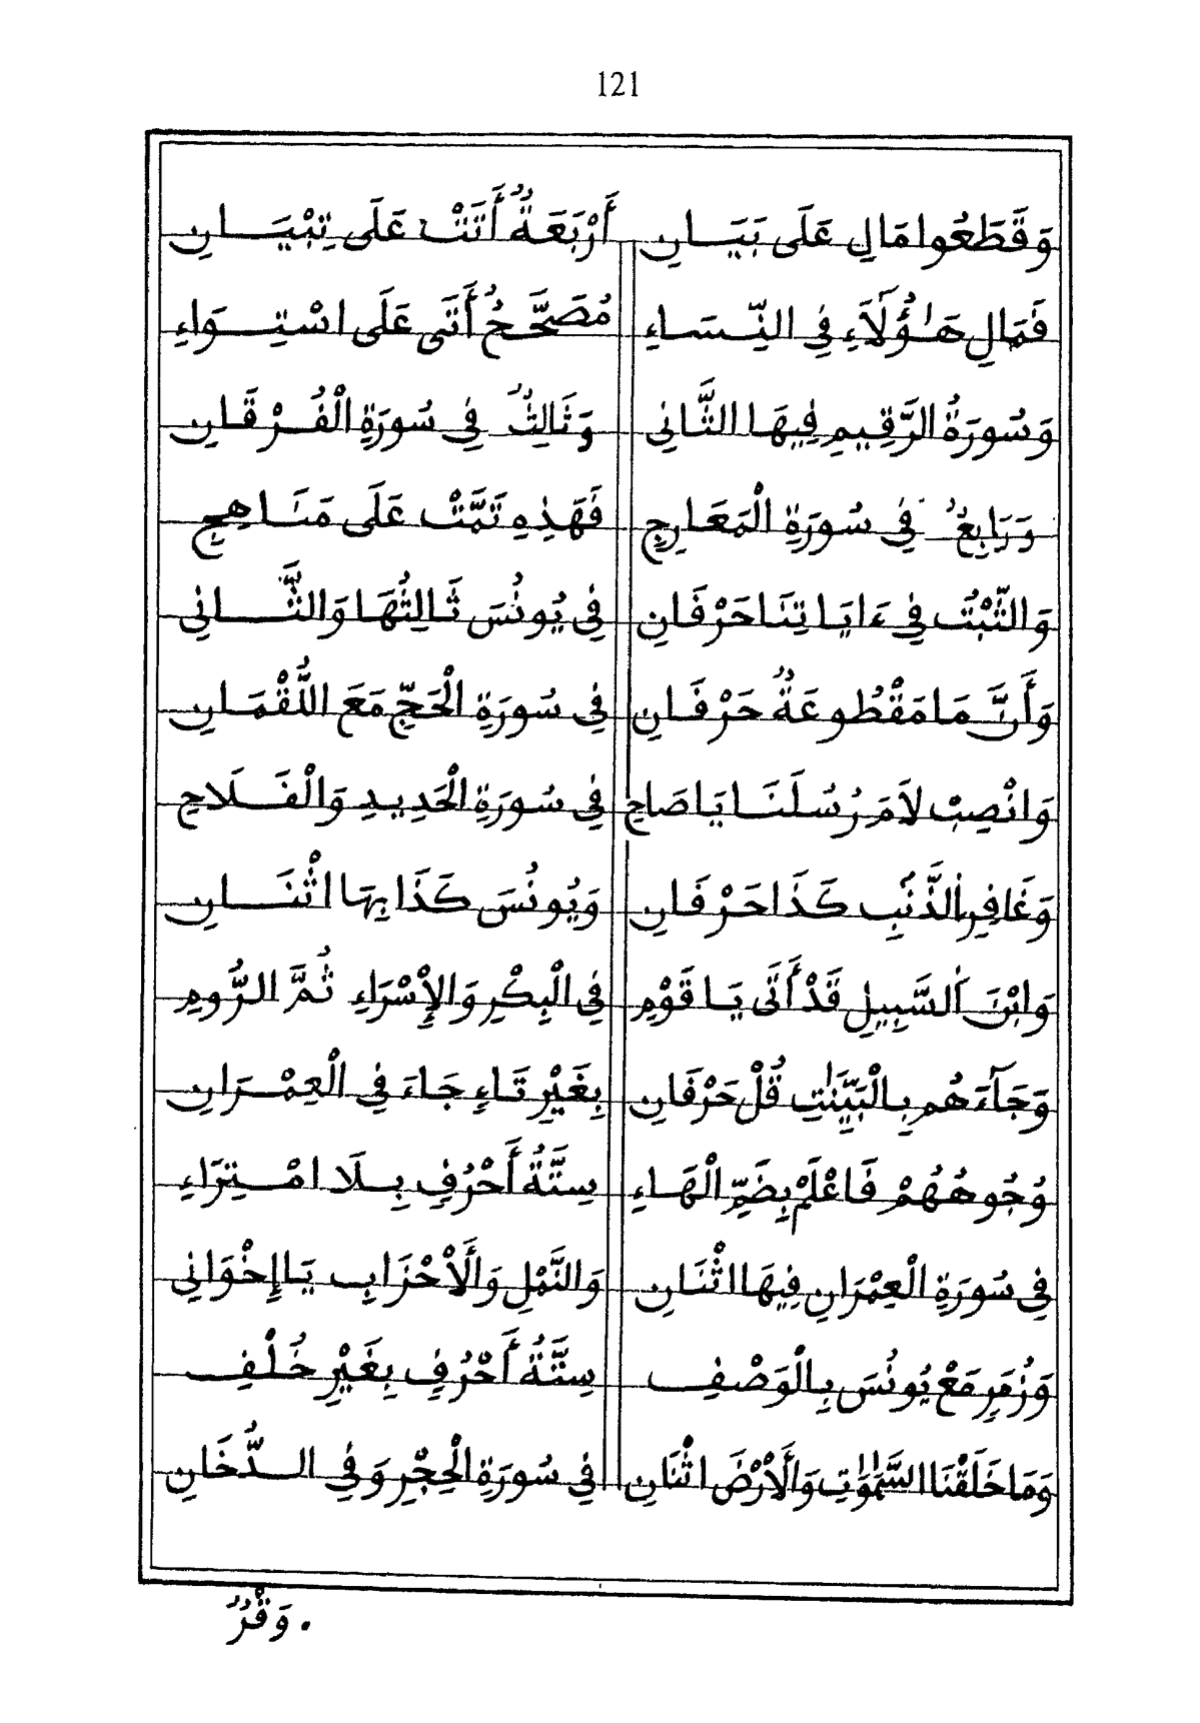 121
وَقَطَعُوا مَالِ عَلَى بَيَـانِ أَرْبَعَةٌ أَتَتْ عَلَى تِبْيَـانِ
فَمَالِ هَـٰؤُلَاءِ فِي النِّسَـاءِ مُصَحَّحٌ أَتَى عَلَى اسْتِـوَاءِ
وَسُورَةُ الرَّقِيمِ فِيهَا الثَّانِي وَثَالِثٌ فِي سُورَةِ الْفُرْقَانِ
وَرَابِعٌ فِي سُورَةِ الْمَعَارِجِ فَهَذِهِ تَمَّتْ عَلَى مَنَاهِجِ
وَالثَّبْتُ فِي ءَايَاتِنَا حَرْفَانِ فِي يُونُسَ ثَالِثُهَا وَالثَّـانِي
وَأَنَّ مَا مَقْطُوعَةٌ حَرْفَـانِ فِي سُورَةِ الْحَجِّ مَعَ اللُّقْمَـانِ
وَانْصِبْ لَامَ رُسُلَنَا يَا صَاحِ فِي سُورَةِ الْحَدِيدِ وَالْفَـلَاحِ
وَغَافِرِ الذَّنْبِ كَذَا حَرْفَـانِ وَيُونُسَ كَذَا بِهَا اثْنَـانِ
وَابْنَ السَّبِيلِ قَدْ أَتَى يَا قَوْمِ فِي الْبِكْرِ وَالْإِسْرَاءِ ثُمَّ الرُّومِ
وَجَآءَهُم بِالْبَيِّنَٰتِ قُلْ حَرْفَانِ بِغَيْرِ تَاءٍ جَاءَ فِي الْعِمْـرَانِ
وُجُوهُهُمْ فَاعْلَمْ بِضَمِّ الْهَـاءِ سِتَّةُ أَحْرُفٍ بِـلَا امْـتِرَاءِ
فِي سُورَةِ الْعِمْرَانِ فِيهَا اثْنَانِ وَالنَّمْلِ وَالْأَحْزَابِ يَا إِخْوَانِي
وَزُمَرٍ مَعْ يُونُسَ بِالْوَصْفِ سِتَّةُ أَحْرُفٍ بِغَيْرِ خُلْفِ
وَمَا خَلَقْنَا السَّمَٰوَٰتِ وَالْأَرْضَ اثْنَانِ فِي سُورَةِ الْحِجْرِ وَفِي الـدُّخَانِ
. وَقْرٌ